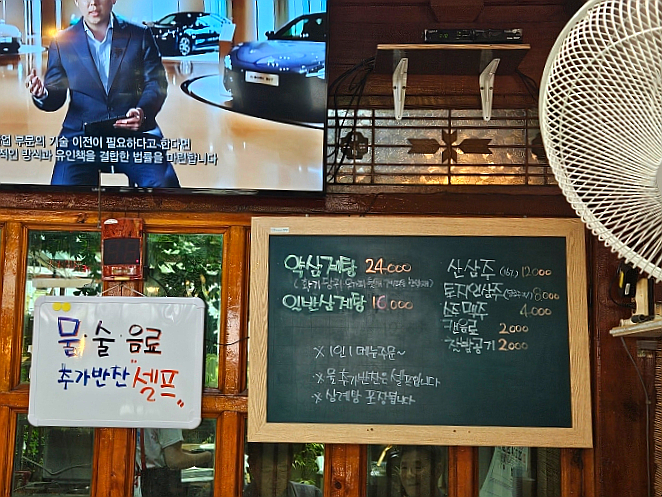 부문의 기술 이전이 필요하다고 한다면
방식과 유인책을 결합한 법률을 마련합니다
물·술·음료
추가반찬 "셀프"
약삼계탕 24.000
일반삼계탕 16.000
※ 1인 1메뉴주문~
※ 물 추가반찬은 셀프입니다
※ 삼계탕 포장됩니다
산삼주 12.000
8.000
4.000
캔음료 2.000
2.000